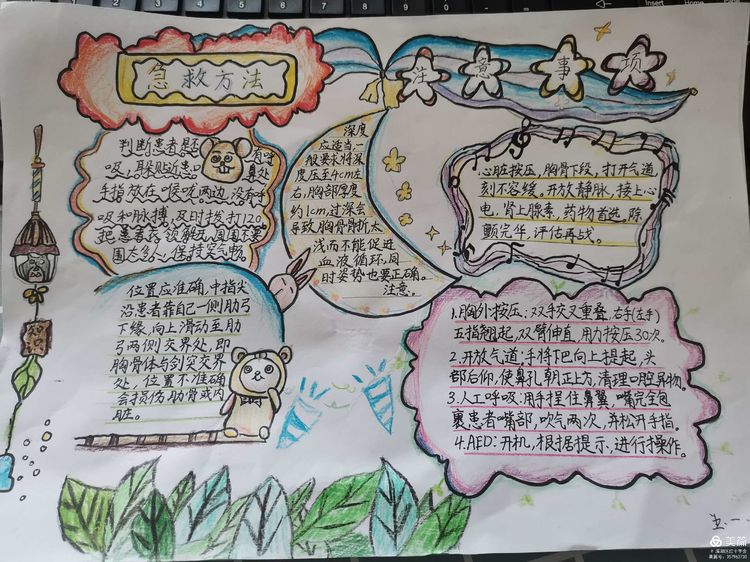 急救方法
注意事项
判断患者是否有呼
吸，耳朵贴近患者鼻处
手指放在喉咙两边，没有呼
吸和脉搏，及时拨打120。
把患者衣领解开，周围不要
围太多人，保持空气畅。
深度
应适当，一
般要求将深
度压至4cm左
右，胸部厚度
约1cm，过深会
导致胸骨骨折，太
浅而不能促进
血液循环，同
时姿势也要正确。
注意。
心脏按压，胸骨下段，打开气道
刻不容缓。开放静脉，接上心
电，肾上腺素，药物首选，除
颤完毕，评估再战。
位置应准确，中指尖
沿患者靠自己一侧肋弓
下缘，向上滑动至肋
弓两侧交界处，即
胸骨体与剑突交界
处，位置不准确
会损伤肋骨或内
脏。
1.胸外按压：双手交叉重叠，右手(左手)
五指翘起，双臂伸直，用力按压30次。
2.开放气道：手将下巴向上提起，头
部后仰，使鼻孔朝正上方，清理口腔异物。
3.人工呼吸：用手捏住鼻翼，嘴完全包
裹患者嘴部，吹气两次，并松开手指。
4.AED：开机，根据提示，进行操作。
知识
Insert
Home
美篇